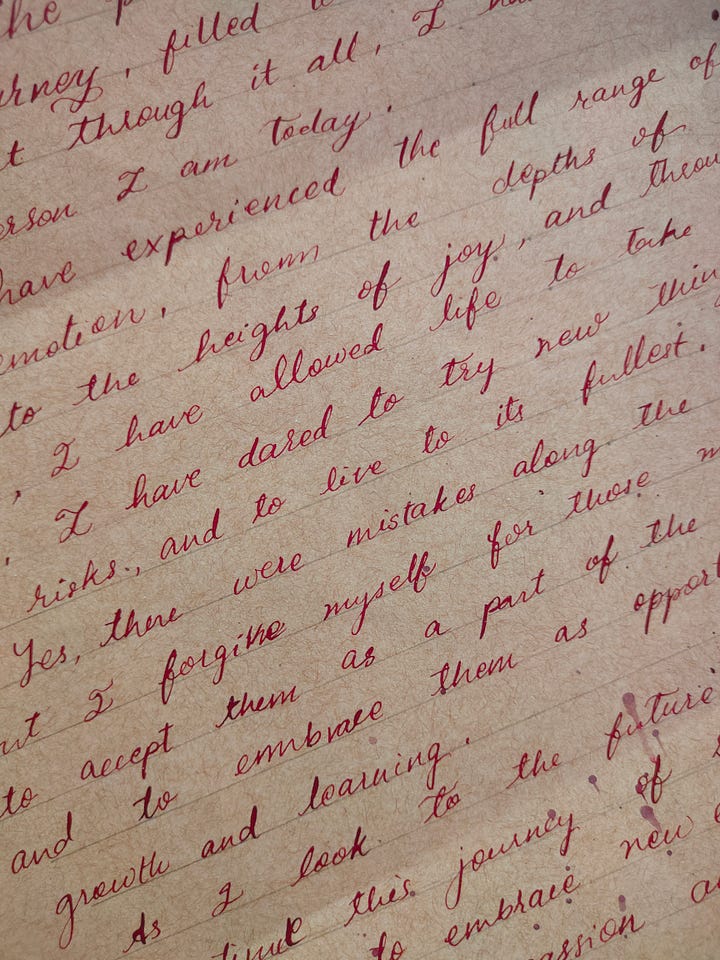 the p
urney, filled
t through it all, I ha
erson I am today.
have experienced the full range of
emotion, from the depths of
to the heights of joy, and throu
, I have allowed life to take
, I have dared to try new thin
risks., and to live to its fullest.
Yes, there were mistakes along the
ut I forgive myself for those m
to accept them as a part of the
and to embrace them as opport
growth and learning.
As I look to the future
tinue this journey of
to embrace new
assion a